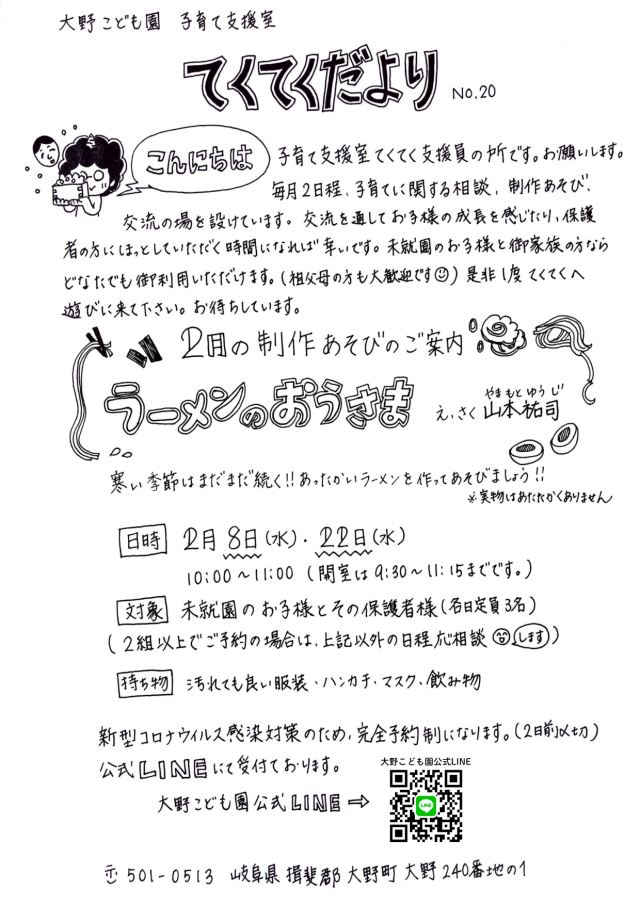 大野こども園 子育て支援室
てくてくだより No.20
こんにちは
子育て支援室てくてく支援員の所です。お願いします。
毎月2日程、子育てに関する相談、制作あそび、
交流の場を設けています。交流を通してお子様の成長を感じたり、保護
者の方にほっとしていただく時間になれば幸いです。未就園のお子様と御家族の方なら
どなたでも御利用いただけます。(祖父母の方も大歓迎です☺) 是非1度てくてくへ
遊びに来て下さい。お待ちしています。
2月の制作あそびのご案内
ラーメンのおうさま
やまもとゆうじ
え、さく 山本祐司
寒い季節はまだまだ続く!!あったかいラーメンを作ってあそびましょう!!
※実物はあたたかくありません
日時 2月8日(水)・22日(水)
10:00~11:00 (開室は9:30~11:15までです。)
対象 未就園のお子様とその保護者様(各日定員3名)
(2組以上でご予約の場合は、上記以外の日程応相談 します)
持ち物 汚れても良い服装・ハンカチ・マスク、飲み物
新型コロナウイルス感染対策のため、完全予約制になります。(2日前〆切)
公式LINEにて受付ております。
大野こども園公式LINE
大野こども園公式LINE ⇨
LINE
〒501-0513 岐阜県 揖斐郡 大野町 大野240番地の1